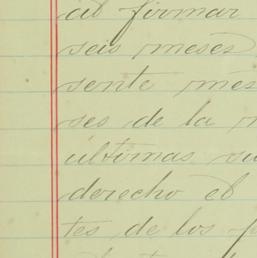 al firmar
seis meses
sente mes
ses de la
ultimas su
derecho el
tes de los